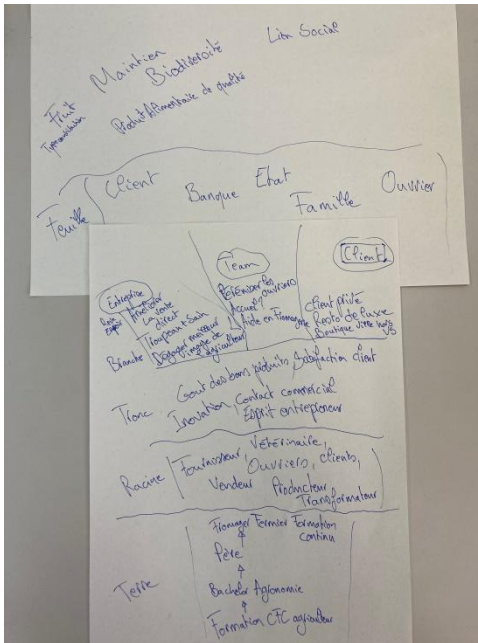 Lien Social
Maintien
Biodiversité
Fruit
Produit Alimentaire de qualité
Feuille
Client
Banque
Etat
Famille
Ouvrier
Branche
Entreprise
Améliorer
la vente
direct
Troupeau + Sain
Dégager meilleur
image de
l'agriculteur
Team
Pérenniser les
ouvriers
Accueil ?
Aide en Fromagerie
Client
Client privé
Resto de luxe
Boutique
Tronc
Gout des bons produits, Satisfaction client
Inovation, Contact commercial
Esprit entrepreneur
Racine
Fournisseur, Vétérinaire,
Ouvriers, clients,
Vendeur Producteur
Transformateur
Terre
Fromager Fermier Formation
continu
↑
Père
↑
Bachelor Agronomie
↑
Formation CFC agriculteur